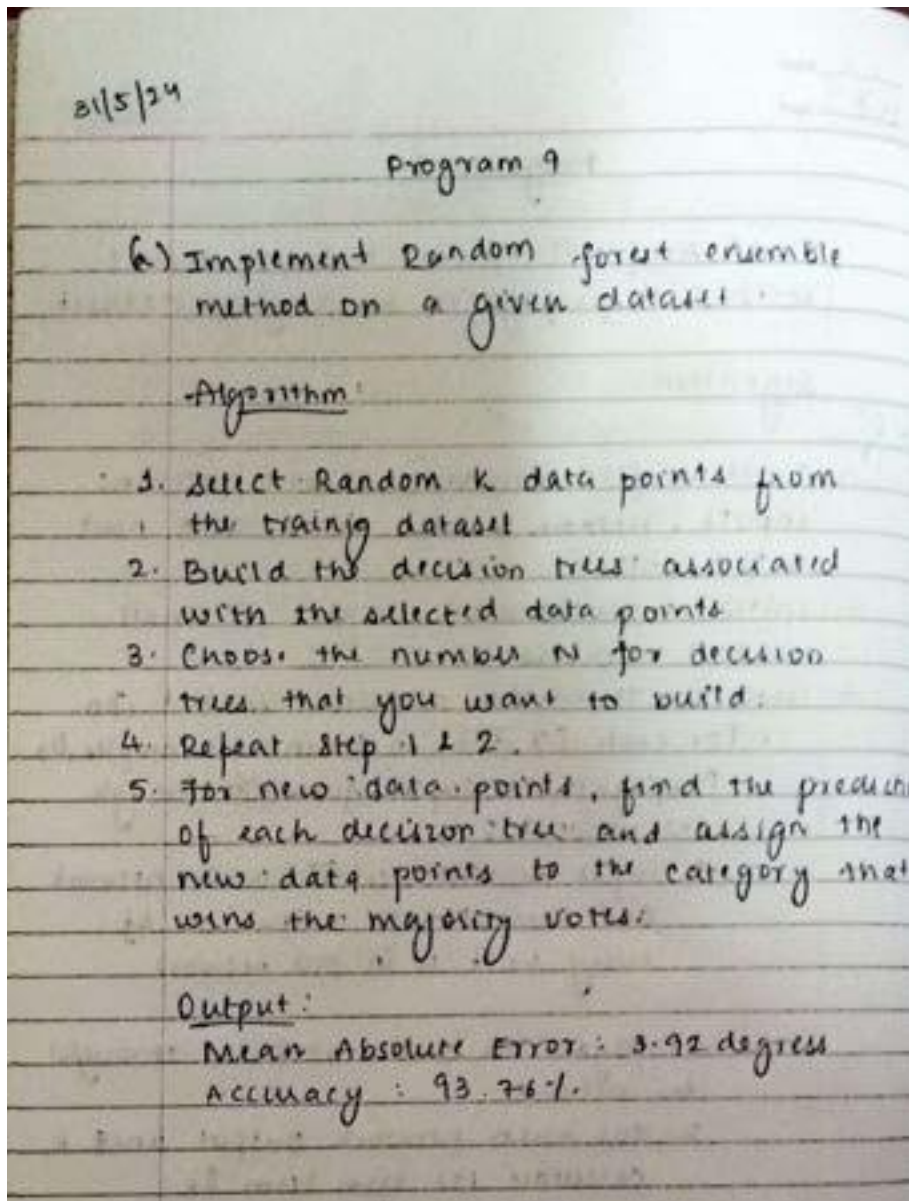 31/5/24
Program 9
a) Implement Random forest ensemble
method on a given dataset.
Algorithm:
1. Select Random K data points from
the trainig dataset
2. Build the decision trees associated
with the selected data points
3. Choose the number N for decision
trees that you want to build.
4. Repeat Step 1 & 2.
5. For new data points, find the predicti
of each decision tree and assign the
new data points to the category that
wins the majority votes.
Output:
Mean Absolute Error: 3.92 degress
Accuracy : 93.76%.